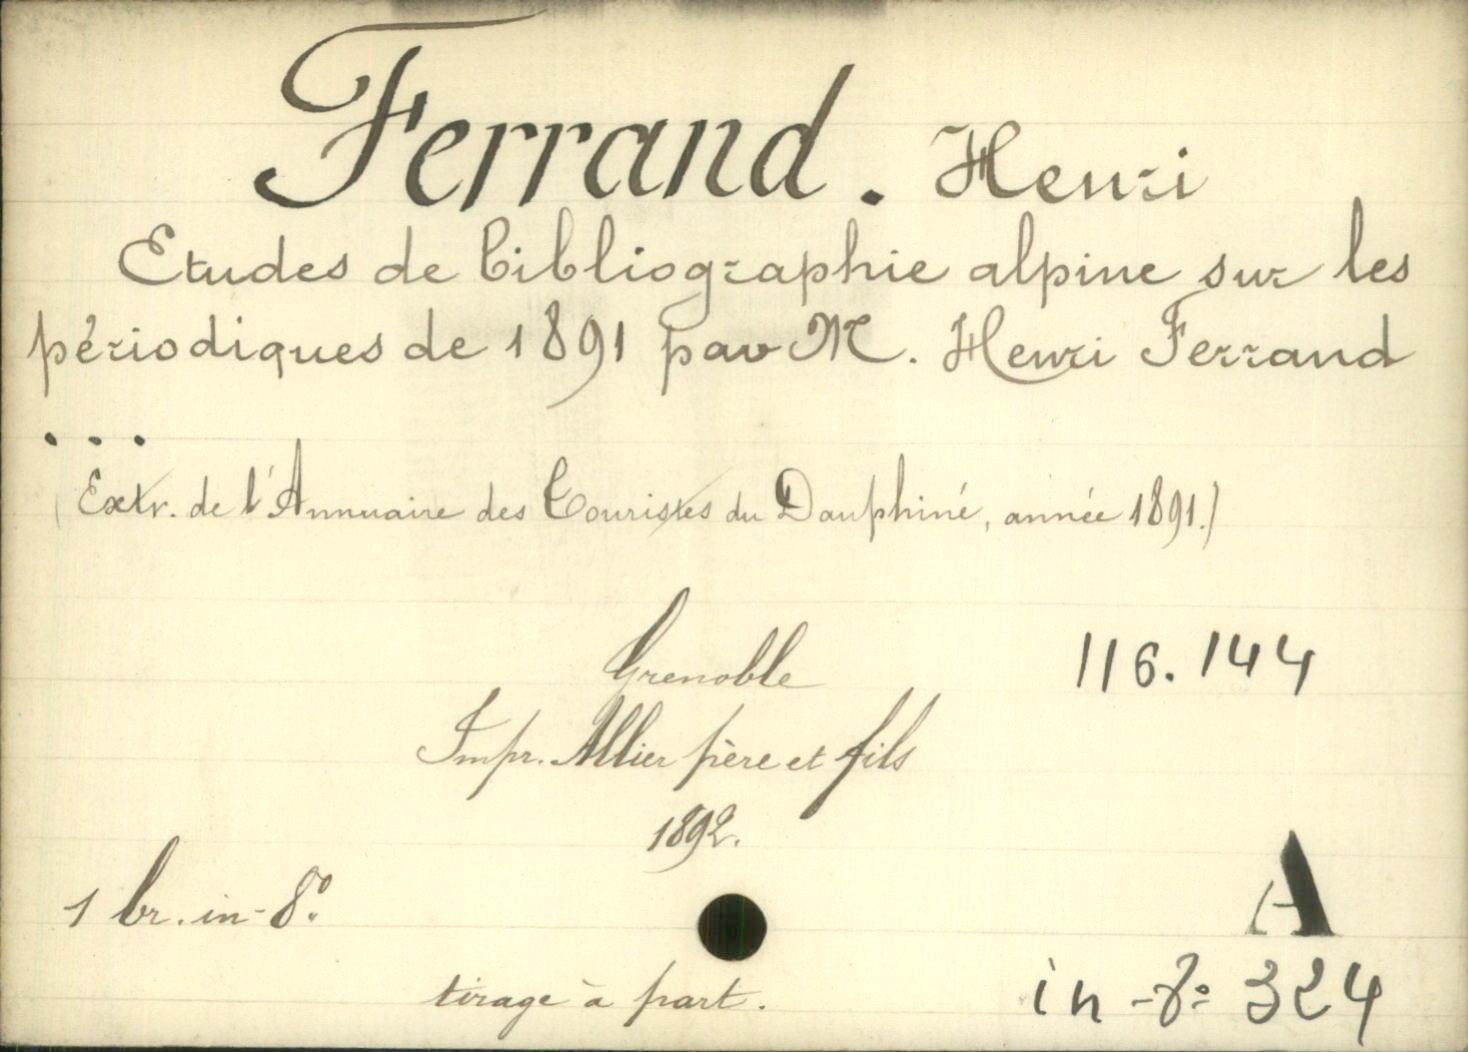 Ferrand. Henri
Etudes de bibliographie alpine sur les
périodiques de 1891 par M. Henri Ferrand
...
(Extr. de l'Annuaire des Touristes du Dauphiné, année 1891.)
Grenoble
116.144
Impr. Allier père et fils
1892.
1 br. in-8°.
A
in-8° 324
tirage à part.